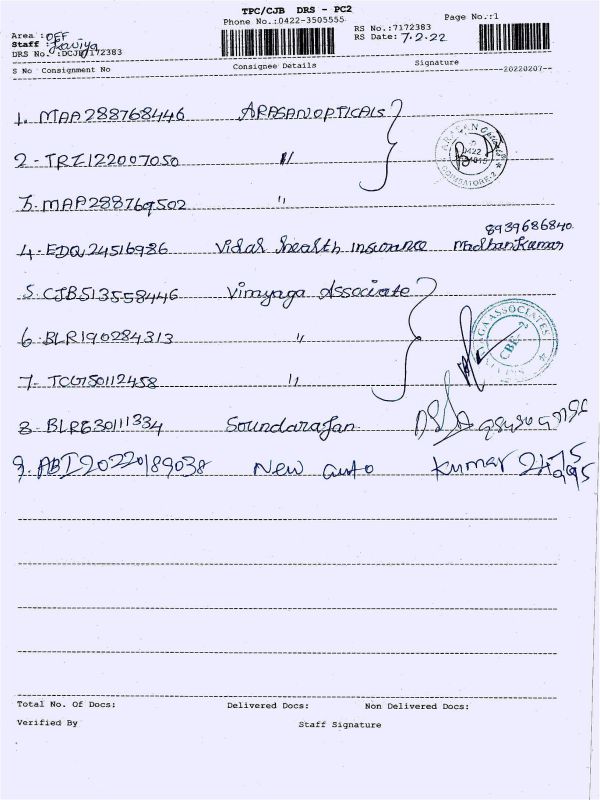 TPC/CJB DRS - PC2
Phone No.:0422-3505555
Page No.:1
Area :OFF
Staff :
RS No.:7172383
DRS No. :DCJB7172383
RS Date: 7.2.22
S No Consignment No Consignee Details Signature --20220207--
1. MAA288768446 ARASAN OPTICALS
ARASAN Opticals
0422
COIMBATORE-2
2 - TRZ122007050 "
3. MAP288769502 "
8939686840
4. EDQ24516986 Vidal health insurance Madhan Kumar
5. CJB513558446 Vinayaga Associate
6. BLR190284313 "
AGA ASSOCIATES
CBE-2
7. TCG150112458 "
8. BLR630111334 Soundarajan
9. ABI20220189038 New auto Kumar
Total No. Of Docs: Delivered Docs: Non Delivered Docs:
Verified By Staff Signature